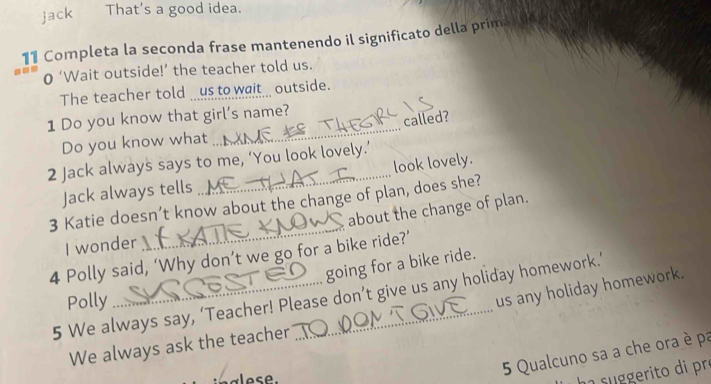 jack That's a good idea.
11 Completa la seconda frase mantenendo il significato della prim
0 'Wait outside!' the teacher told us.
The teacher told us to wait outside.
1 Do you know that girl's name?
Do you know what THE GIRL IS called?
2 Jack always says to me, 'You look lovely.'
Jack always tells ME THAT I look lovely.
3 Katie doesn't know about the change of plan, does she?
I wonder If KATIE KNOWS about the change of plan.
4 Polly said, 'Why don't we go for a bike ride?'
Polly SUGGESTED going for a bike ride.
5 We always say, 'Teacher! Please don't give us any holiday homework.'
We always ask the teacher TO DON'T GIVE us any holiday homework.
inglese.
5 Qualcuno sa a che ora è pa
ha suggerito di pr